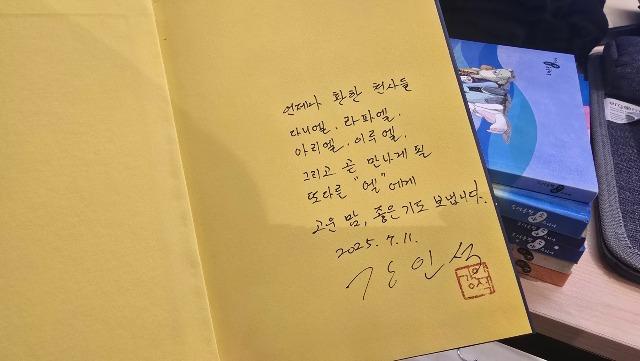 언제나 환한 천사들
다니엘, 라파엘,
아리엘, 이루엘,
그리고 곧 만나게 될
또다른 "엘"에게
고운 맘, 좋은 기도 보냅니다.
2025. 7. 11.
강인석